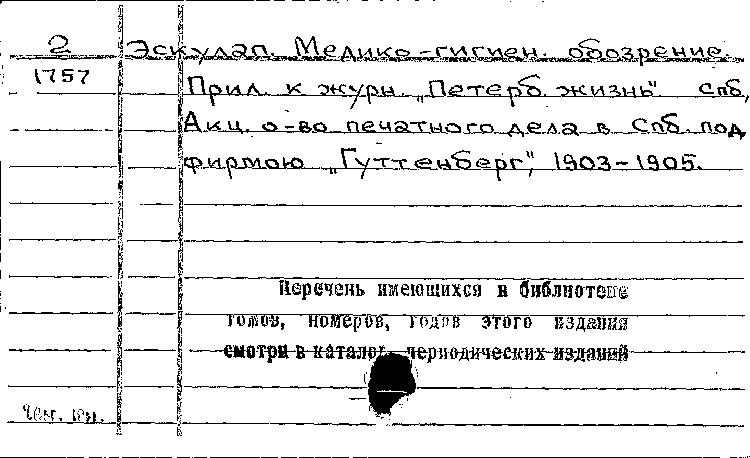 2 Эскулап. Медико-гигиен. обозрение.
1757 Прил. к журн. „Петерб. жизнь“. Спб,
Акц. о-во печатного дела в Спб. под
фирмою „Гуттенберг“, 1903-1905.
Перечень имеющихся в библиотеке
томов, номеров, годов этого издания
смотри в каталог периодических изданий